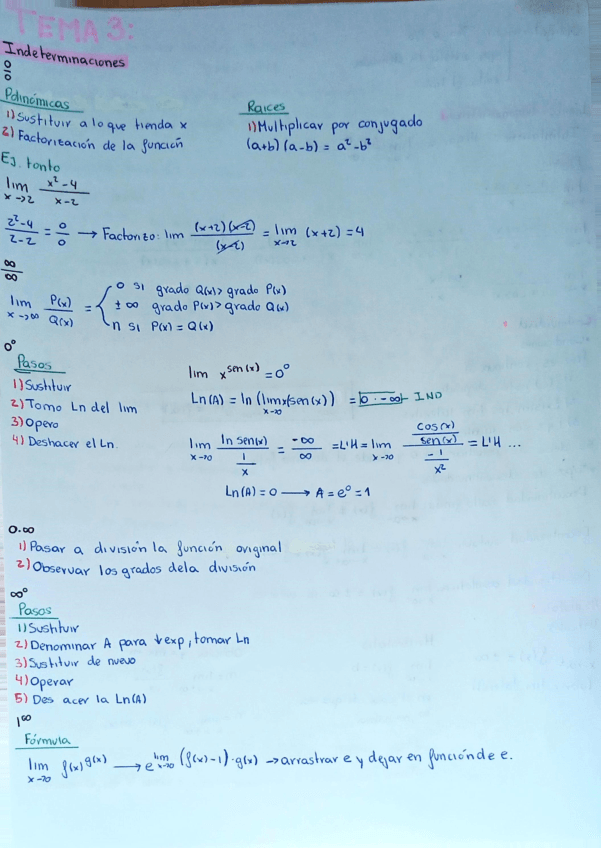 TEMA 3:
Indeterminaciones
0/0
Polinómicas
1) Sustituir a lo que tienda x
2) Factorización de la función
Raices
1) Multiplicar por conjugado
(a+b) (a-b) = a² - b²
Ej. tonto
lim x→2 x²-4 / x-2
2²-4 / 2-2 = 0/0 → Factorizo: lim (x+2)(x-2) / (x-2) = lim x→2 (x+2) = 4
∞/∞
lim x→∞ P(x)/Q(x) = { 0 si grado Q(x) > grado P(x)
± ∞ grado P(x) > grado Q(x)
n si P(x) = Q(x)
0⁰
Pasos
1) Sustituir
2) Tomo Ln del lim
3) Opero
4) Deshacer el Ln.
lim x^sen(x) = 0⁰
Ln(A) = ln (lim x→0 x(sen(x)) = 0 · -∞ IND
lim x→0 ln sen(x) / 1/x = -∞/∞ = L'H = lim x→0 cos(x)/sen(x) / -1/x² = L'H ...
Ln(A) = 0 → A = e⁰ = 1
0·∞
1) Pasar a división la función original
2) Observar los grados dela división
∞⁰
Pasos
1) Sustituir
2) Denominar A para ↓ exp, tomar Ln
3) Sustituir de nuevo
4) Operar
5) Des acer la Ln(A)
1^∞
Fórmula
lim x→0 f(x)^g(x) → e^lim x→0 (f(x)-1)·g(x) → arrastrar e y dejar en función de e.